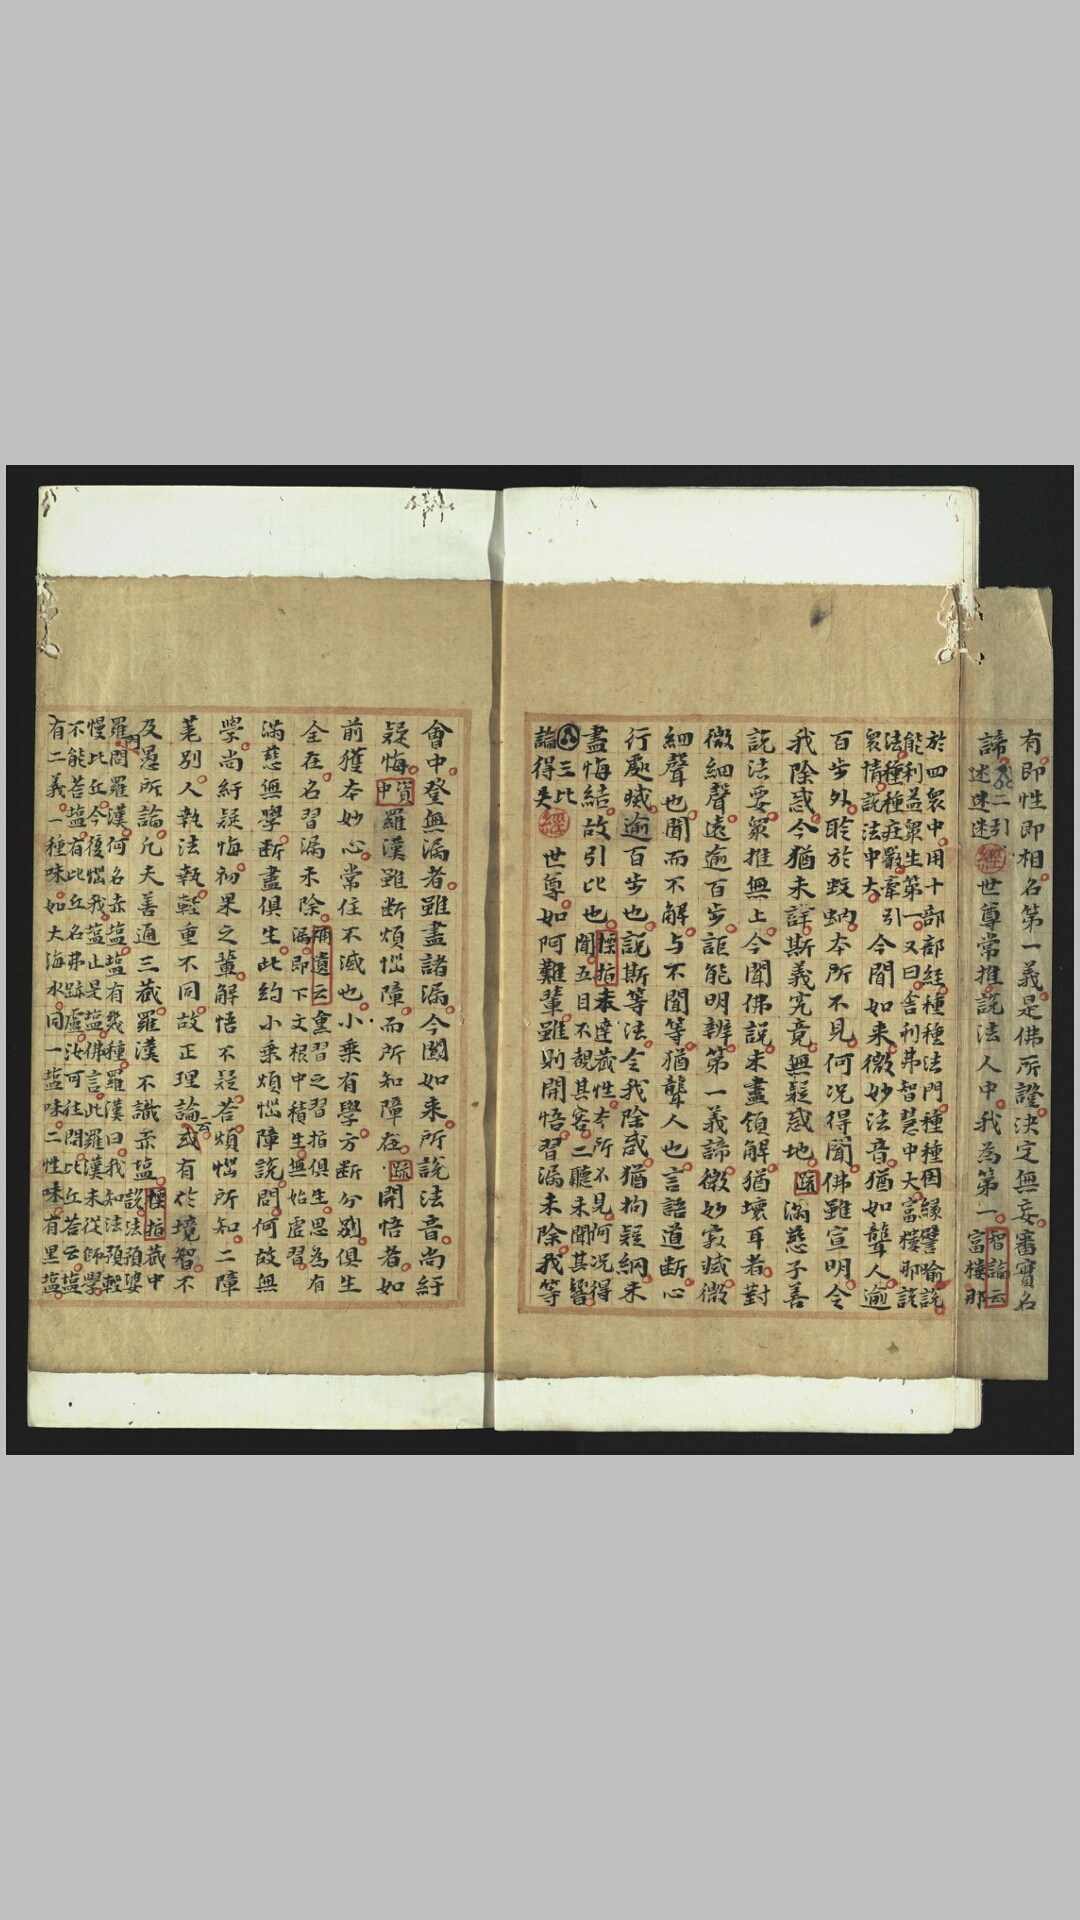 有即性即相名第一義是佛所證決定無妄審實名
諦
二引
述迷
經世尊常推說法人中我為第一
智論云
富樓那
於四衆中用十部部經種種法門種種因緣譬喻說
能利益衆生第一又曰舍利弗智慧中大富樓那說
法種種莊嚴牽引
衆情說法中大
今聞如来微妙法音猶如聾人逾
百步外聆於蚊蚋本所不見何況得聞佛雖宣明令
我除惑今猶未詳斯義究竟無疑惑地疏滿慈子善
說法要衆推無上今聞佛說未盡領解猶壞耳者對
微細聲遠逾百步詎能明辨第一義諦微妙寂滅微
細聲也聞而不解与不聞等猶聾人也言語道断心
行處滅逾百步也說斯等法令我除惑猶拘疑網未
盡悔結故引比也
摽指未達藏性本所不見何況得
聞五目不覩其容二聽未聞其響
三比
論得失
經世尊如阿難輩雖則開悟習漏未除我等
會中登無漏者雖盡諸漏今聞如来所說法音尚紆
疑悔
資中
羅漢雖断煩惱障而所知障在疏開悟者如
前獲本妙心常住不滅也小乘有學方断分別俱生
全在名習漏未除
補遺云熏習之習指俱生思為有
漏即下文根中積生無始虛習
滿慈無學断盡俱生此約小乘煩惱障說問何故無
學尚紆疑悔初果之輩解悟不疑荅煩惱所知二障
別人執法執輕重不同故正理論云或有於境智不
及愚所論凡夫善通三藏羅漢不識赤塩
摽指藏中
說法預婆
羅門問羅漢何名赤塩塩有幾種羅漢曰我知法預輕
慢比丘今復惱我塩止是塩佛言此羅漢未從師學
不能荅塩有比丘名弗迦盧汝可往問比丘荅云塩
有二義一種味如大海水同一塩味二性味有黑塩